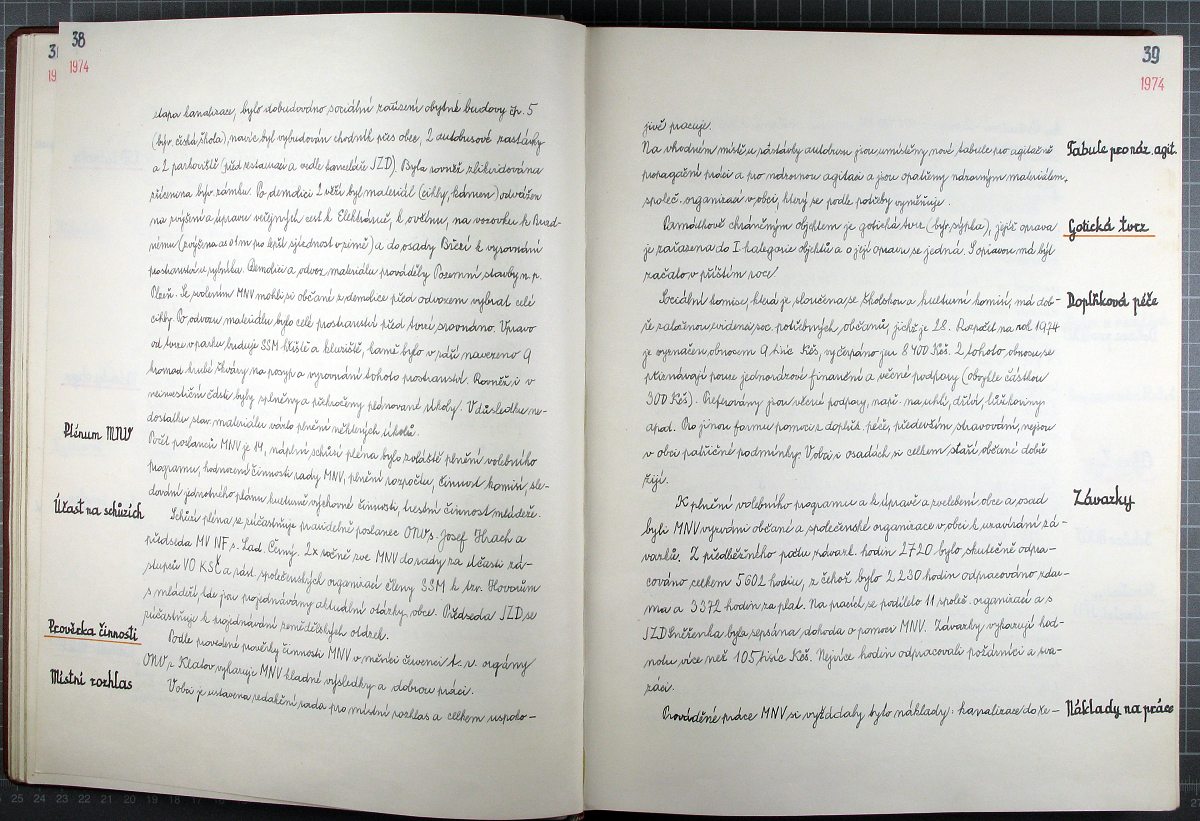 38
1974
etapa kanalizace, bylo dobudováno sociální zařízení obytné budovy čp. 5
(býv. česká škola), navíc byl vybudován chodník přes obec, 2 autobusové zastávky
a 2 parkoviště (před restaurací a vedle kanceláře JZD). Byla rovněž zlikvidována
zřícenina býv. zámku. Po demolici 2 věží byl materiál (cihly, kámen) odvážen
na zvýšení a úpravu veřejných cest k Elektrárně, k ovčínu, na vozovku k
nému (zvýšena as o 1 m pro lepší sjízdnost v zimě) a do osady Bíčzí k vyrovnání
prostranství u rybníka. Demolici a odvoz materiálu prováděly Pozemní stavby n. p.
Plzeň. Se svolením MNV mohli si občané z demolice před odvozem vybrat celé
cihly. Po odvozu materiálu bylo celé prostranství před tvrzí srovnáno. Vpravo
od tvrze v parku buduje SSM hřiště a kluziště, kamž bylo v září navezeno 9
hromad hrubé škváry na posyp a vyrovnání tohoto prostranství. Rovněž i v
neinvestiční části byly splněny a překročeny plánované úkoly. V důsledku ne-
dostatku stav. materiálu vázlo plnění některých úkolů.
Plénum MNV
Počet poslanců MNV je 14, náplní schůzí pléna bylo zvláště plnění volebního
programu, hodnocení činnosti rady MNV, plnění rozpočtu, činnost komisí, sle-
dování jednotného plánu kulturně výchovné činnosti, hesbní činnost mládeže.
Účast na schůzích
Schůzí pléna se zúčastňuje pravidelně poslanec ONV s. Josef Hrach a
předseda MV NF s. Lad. Černý. 2x ročně zve MNV do rady za účasti zá-
stupců VO KSČ a zást. společenských organizací členy SSM k tzv. Hovorům
s mládeží, kde jsou projednávány aktuální otázky obce. Předseda JZD se
zúčastňuje k projednávání zemědělských otázek.
Prověrka činnosti
Podle provedené prověrky činnosti MNV v měsíci červenci t. r. orgány
ONV z Klatov vykazuje MNV kladné výsledky a dobrou práci.
Místní rozhlas
V obci je ustavena redakční rada pro místní rozhlas a celkem uspoko-
39
1974
jivě pracuje.
Tabule pro náz. agit.
Na vhodném místě u zastávky autobusu jsou umístěny nové tabule pro agitačně
propagační práci a pro názornou agitaci a jsou opatřeny názorným materiálem
společ. organizací v obci, který se podle potřeby vyměňuje.
Gotická tvrz
Památkově chráněným objektem je gotická tvrz (býv. sýpka), jejíž oprava
je zařazena do I. kategorie objektů a o její opravu se jedná. S opravou má být
začato v příštím roce!
Doplňková péče
Sociální komise, která je sloučena se školskou a kulturní komisí, má dob-
ře založenou evidenci soc. potřebných občanů, jichž je 28. Rozpočet na rok 1974
je vyznačen obnosem 9 tisíc Kčs, vyčerpáno jen 8 400 Kčs. Z tohoto obnosu se
přiznávají pouze jednorázové finanční a věcné podpory (obvykle částkou
300 Kčs). Preferovány jsou věcné podpory, např. na uhlí, dříví, lůžkoviny
apod. Pro jinou formu pomoci z doplňk. péče, především stravování, nejsou
v obci patřičné podmínky. V obci i osadách si celkem staří občané dobře
žijí.
Závazky
K plnění volebního programu a k úpravě a zvelebení obce a osad
byli MNV vyzváni občané a společenské organizace v obci k uzavírání zá-
vazků. Z předběžného počtu závazk. hodin 2720 bylo skutečně odpra-
cováno celkem 5602 hodin, z čehož bylo 2 230 hodin odpracováno zdar-
ma a 3372 hodin za plat. Na pracích se podílelo 11 společ. organizací a s
JZD Sněženka byla sepsána dohoda o pomoci MNV. Závazky vykazují hod-
notu více než 105 tisíc Kčs. Nejvíce hodin odpracovali požárníci a sva-
záci.
Náklady na práce
Prováděné práce MNV si vyžádaly byto náklady: kanalizace do Ke-